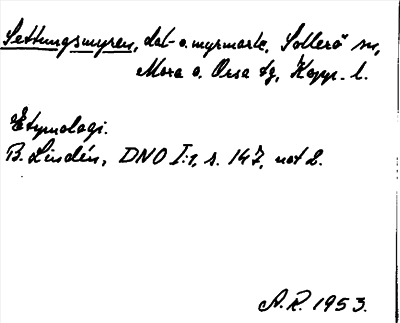 Settungsmyren, dal- o. myrmark, Sollerö sn,
Mora o. Orsa tg, Kopp. l.
Etymologi.
B. Lindén, DNO I:1, s. 147, not 2.
A.R. 1953.